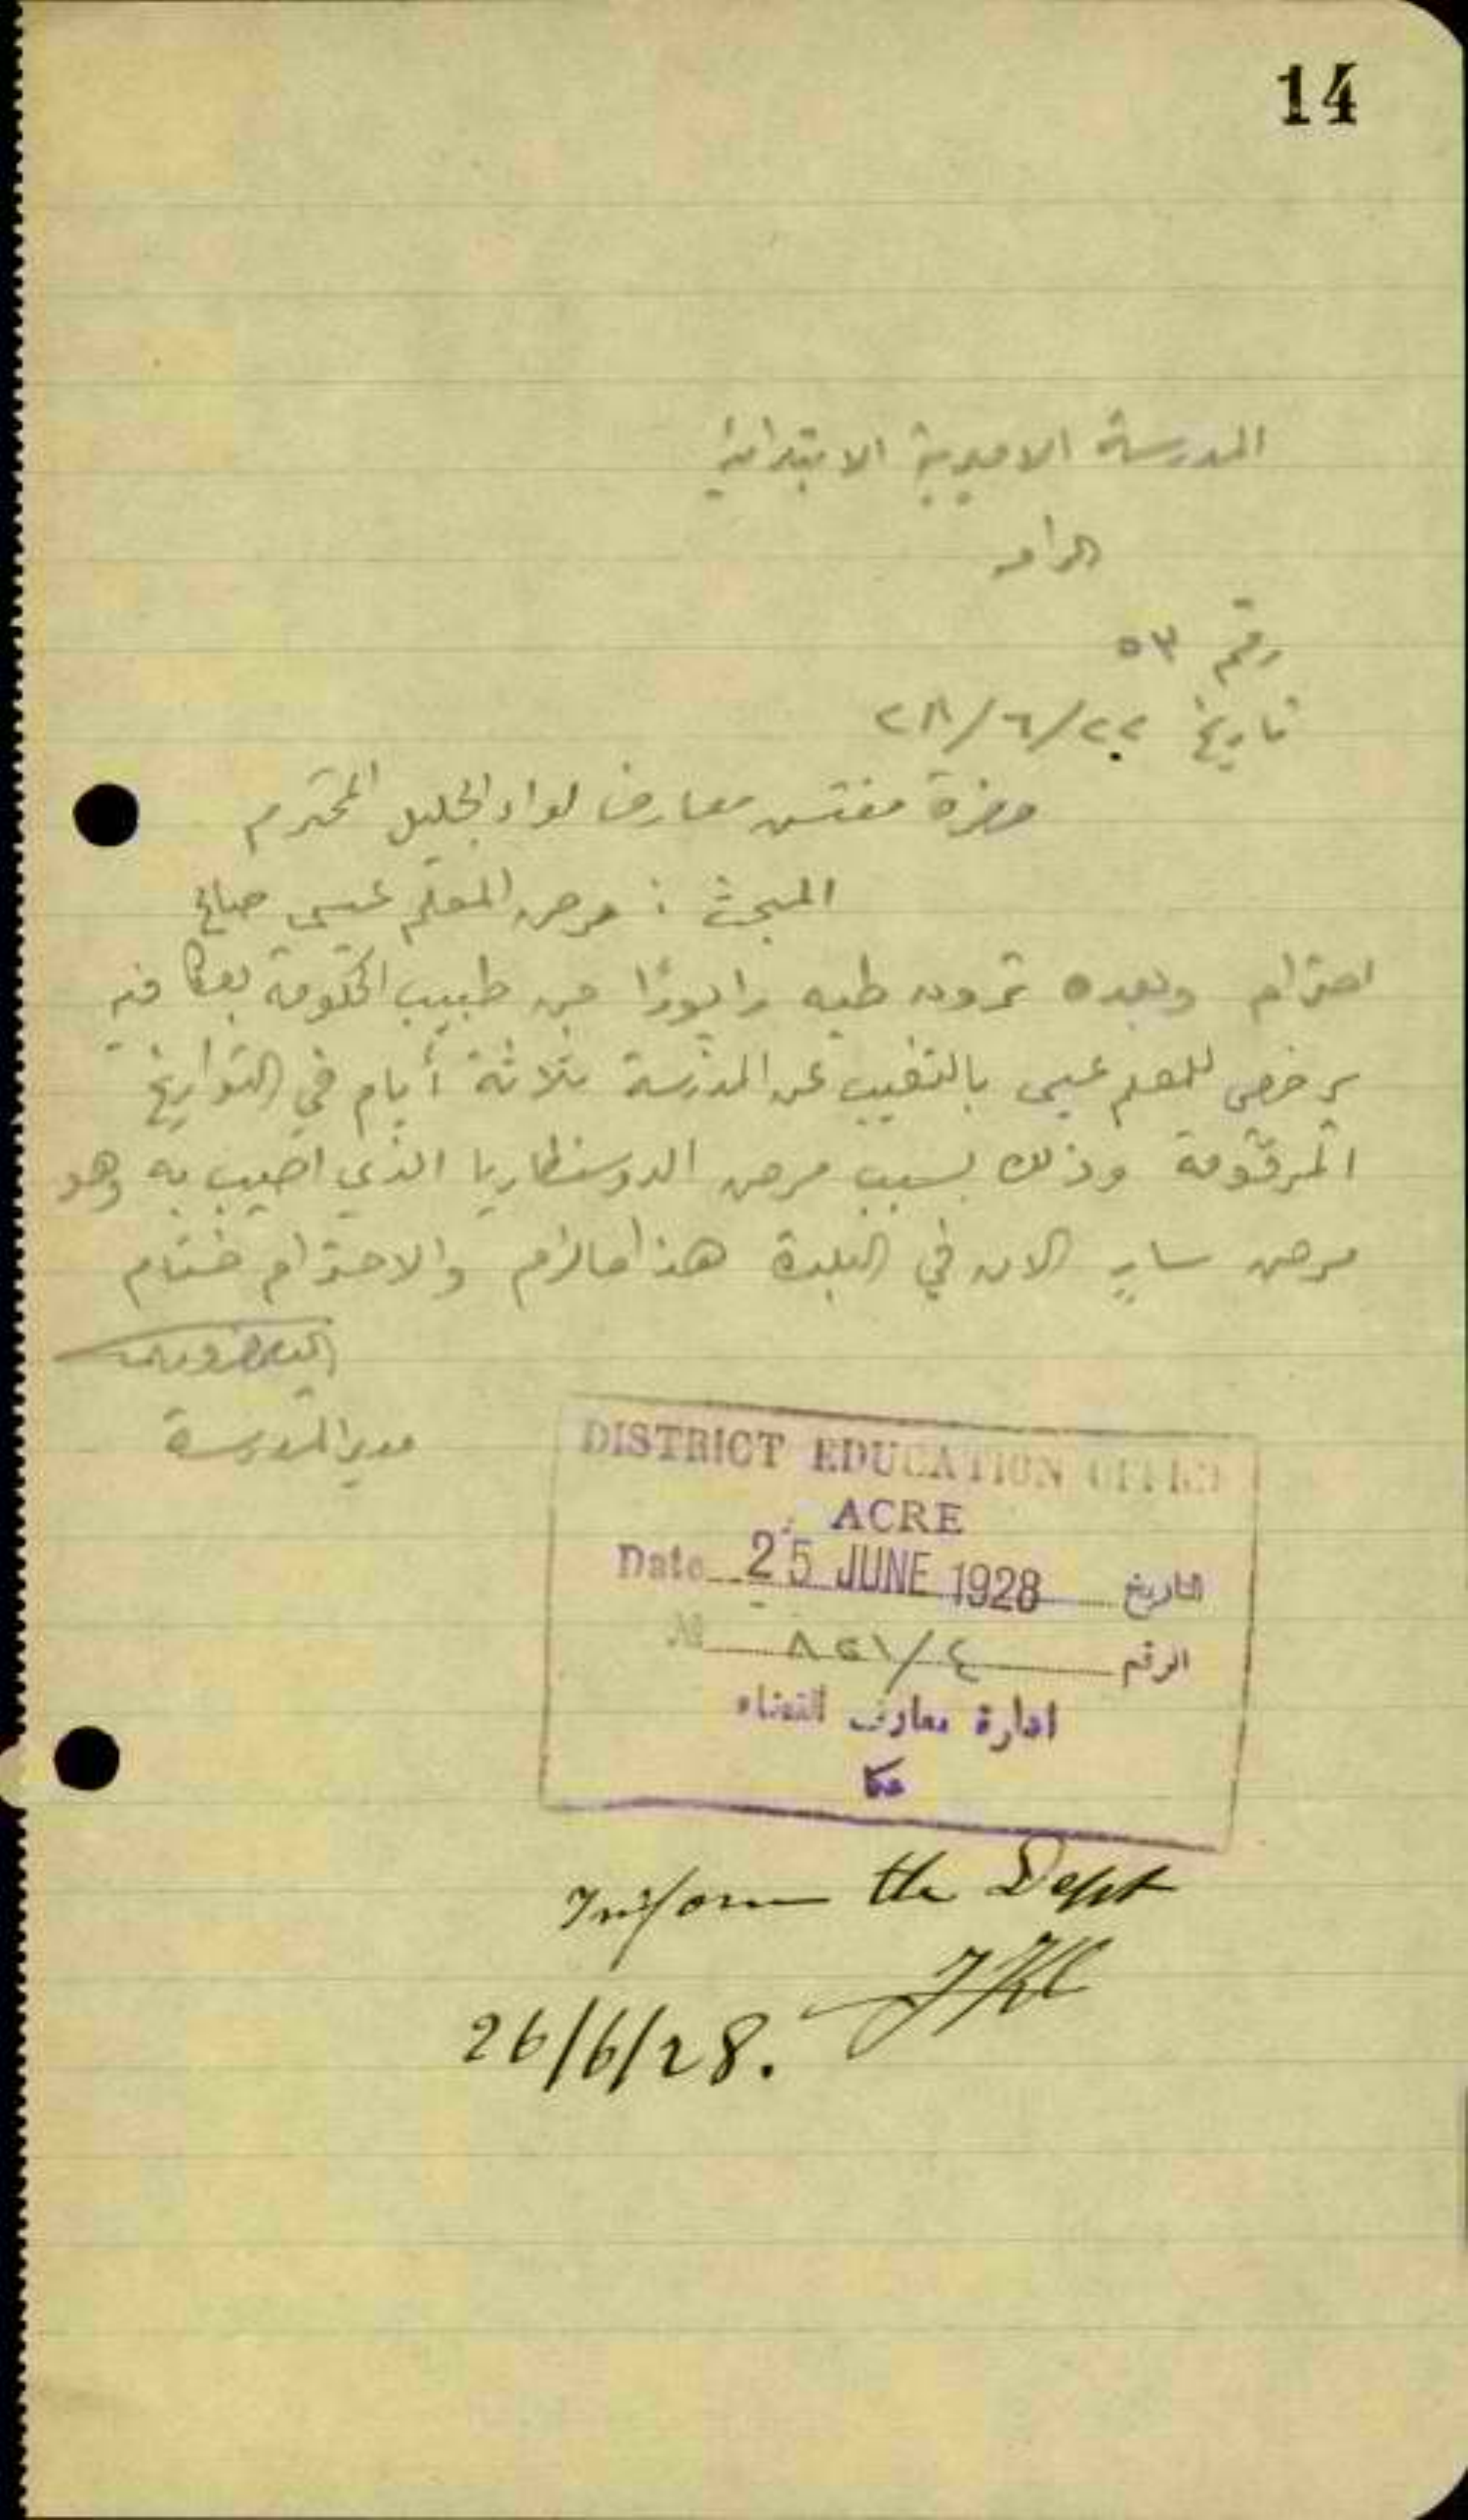 14
المدرسة الاميرية الابتدائية
الرامه
رقم ٥٣
تاريخ ٢٨/٦/٢٢
حضرة مفتش معارف لواء الجليل المحترم
المبحث : مرض المعلم عيسى صالح
احترام وبعده ترون طيه رابورًا من طبيب الحكومة بعكا فيه
يرخص للمعلم عيسى بالتغيب عن المدرسة ثلاثة أيام في التواريخ
المرقومة وذلك بسبب مرض الدوسنطاريا الذي اصيب به وهو
مرض سارٍ الان في البلدة هذا ما لزم والاحترام ختام
مدير المدرسة
DISTRICT EDUCATION OFFICE
ACRE
Date 25 JUNE 1928 التاريخ
№ ٨٥١/٤ الرقم
ادارة معارف القضاء
عكا
Inform the Dept
26/6/28.